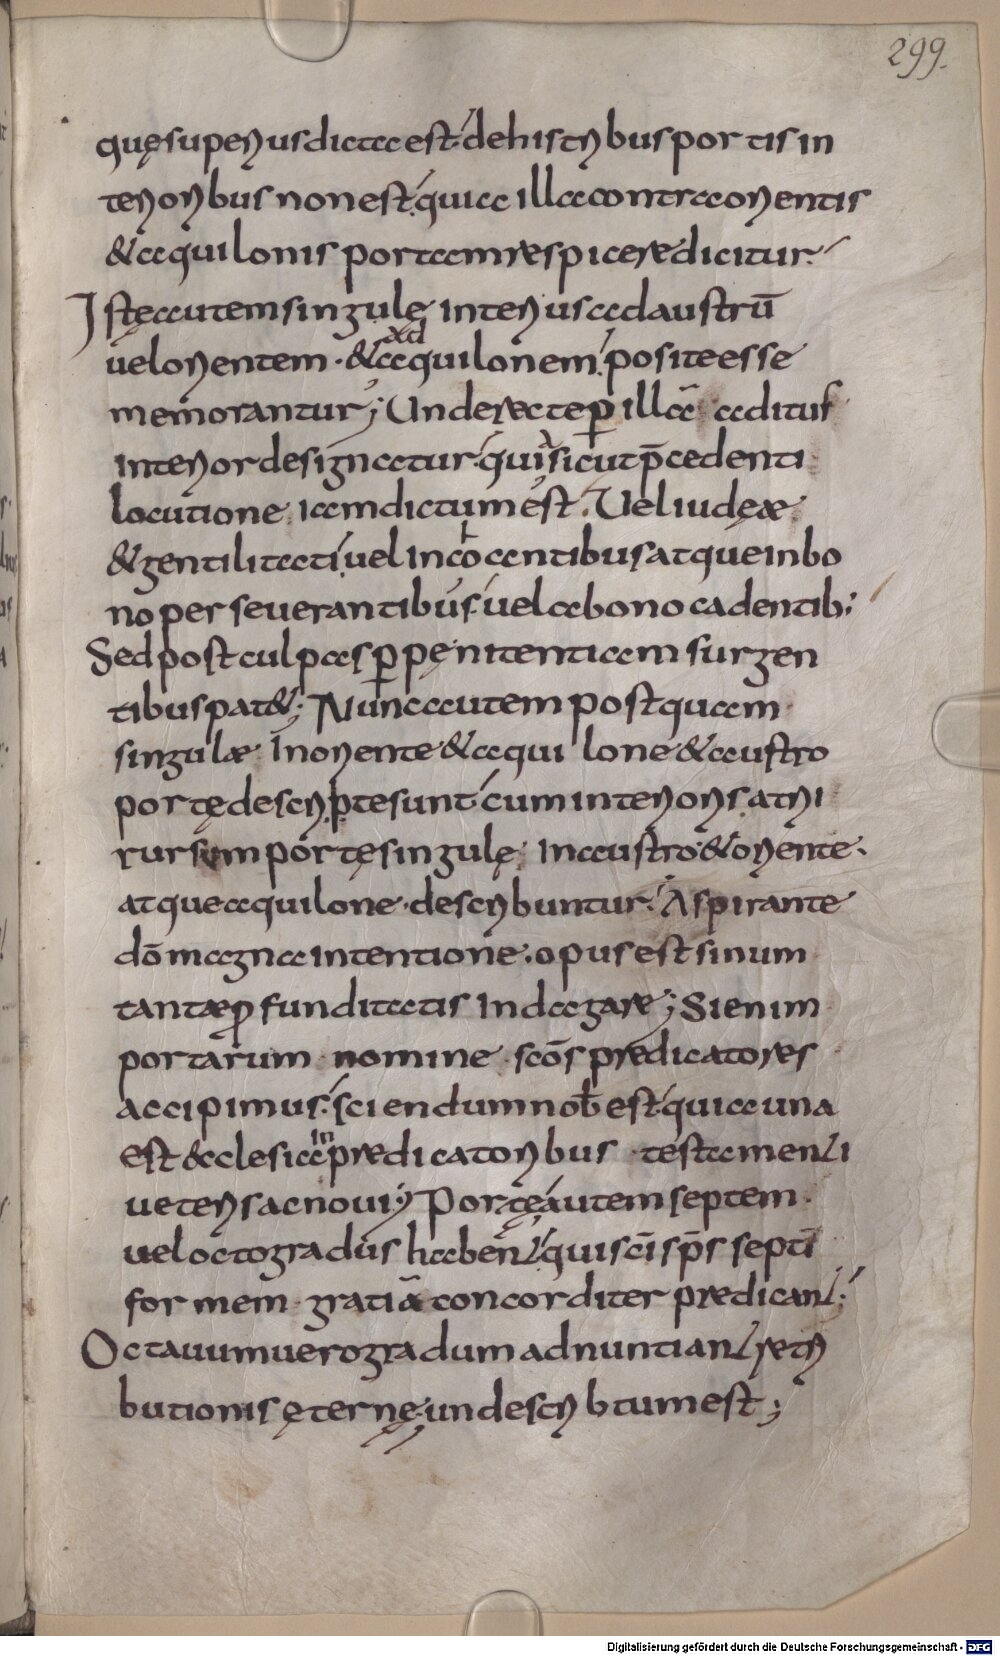 299.
quę superius dicta est. de his tribus portis in
terioribus non est. quia illa contra orientis
& aquilonis portam respicere dicitur.
Istę autem singulę interius ad austrū
vel orientem. & ad aquilonem. posite esse
memorantur; Unde recte ꝑ illā aditus
interior designatur. qui sicut p̄cedenti
locutione iam dictum est. Vel iudęae
& gentilitati. vel inchoantibus atque in bo
no perseverantibus. vel a bono cadentib;
Sed post culpas ꝑ pęnitentiam surgen
tibus pat&; Nunc autem postquam
singulae In oriente & aquilone & austro
portę descriptę sunt. cum interioris atrii
rursum portę singulę In austro & oriente.
atque aquilone. describuntur. Aspirante
dō magna intentione. opus est sinum
tantae ꝓfunditatis Indagare; Si enim
portarum nomine scōs predicatores
accipimus. sciendum nob̄ est. quia una
est &cclesia in predicatoribus testamenti
veteris ac novi; Portę autem septem
vel octo gradus habent. qui sc̄i sp̄s septi
formem gratiā concorditer praedicant;
Octavum vero gradum adnuntiant retri
butionis ęternę. un descriptum est;
Digitalisierung gefördert durch die Deutsche Forschungsgemeinschaft - DFG